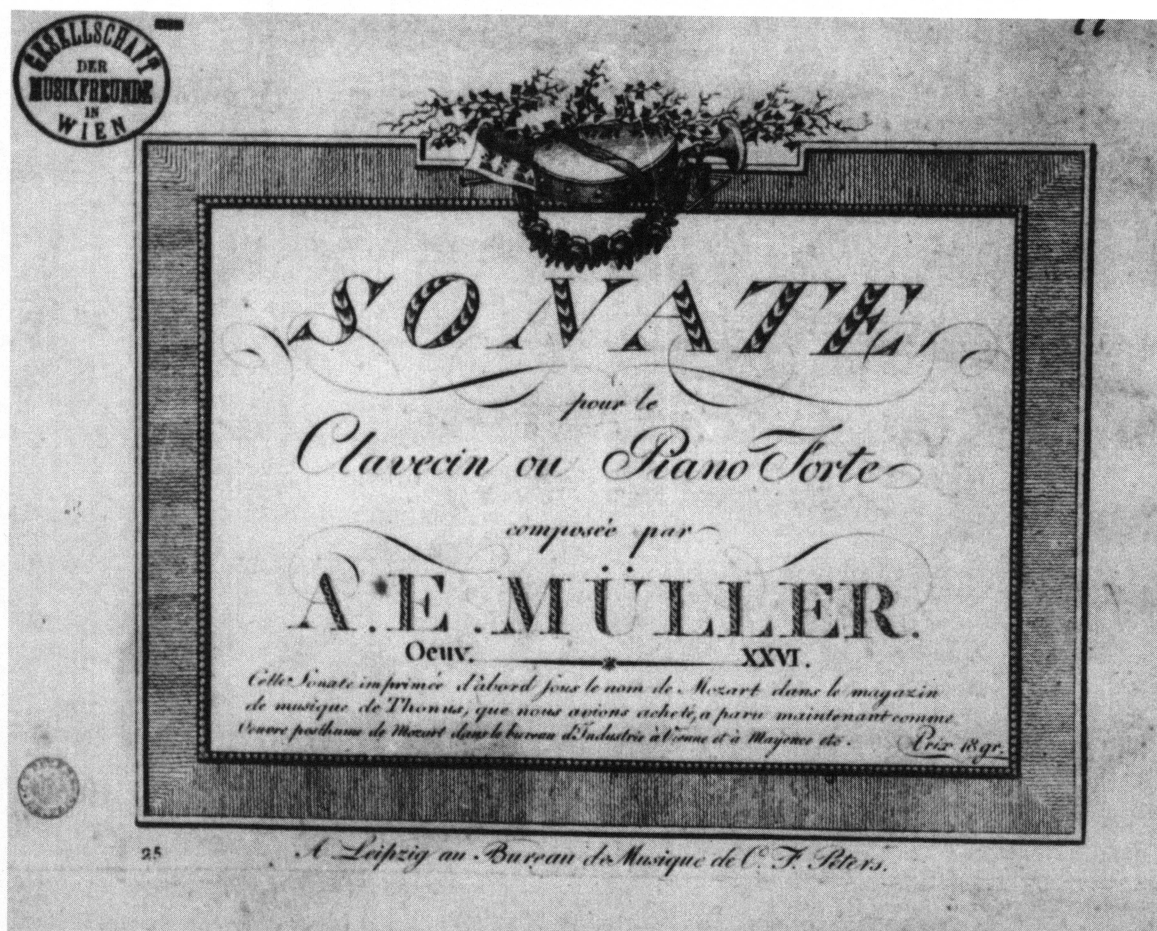 GESELLSCHAFT
DER
MUSIKFREUNDE
IN
WIEN
SONATE
pour le
Clavecin ou Piano Forte
composée par
A. E. MÜLLER.
Oeuv. XXVI.
Cette Sonate imprimée d'abord sous le nom de Mozart dans le magazin
de musique de Thonus, que nous avions acheté, a paru maintenant comme
Oeuvre posthume de Mozart dans le bureau d'Industrie à Vienne et à Mayence etc.
Prix 18 gr.
25
A Leipzig au Bureau de Musique de C. F. Peters.